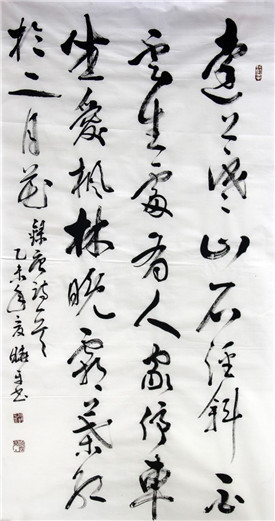 遠上寒山石徑斜白
雲生處有人家停車
坐愛楓林晚霜葉紅
於二月花
錄唐詩一首
乙未年夏